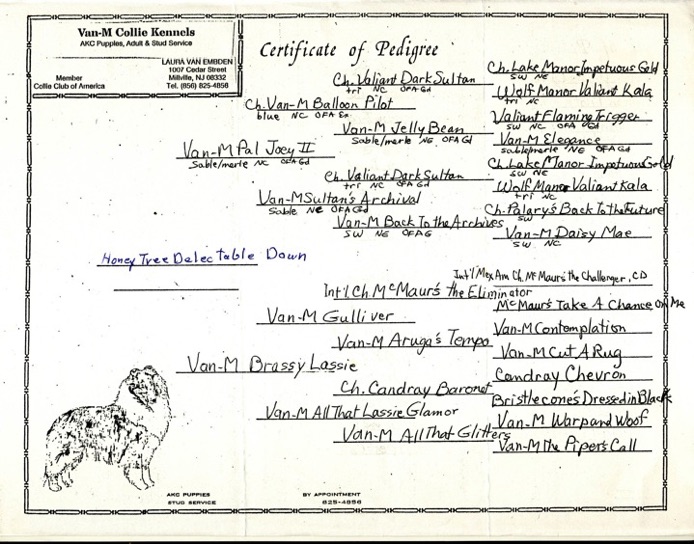 Van-M Collie Kennels
AKC Puppies, Adult & Stud Service
Member
Collie Club of America
LAURA VAN EMBDEN
1007 Cedar Street
Millville, NJ 08332
Tel. (856) 825-4856
Certificate of Pedigree
Ch. Lake Manor Impetuous Gold
SW NE
Ch. Valiant Dark Sultan
tri NC OFA Gd
Wolf Manor Valiant Kala
tri NC
Ch. Van-M Balloon Pilot
blue NC OFA Ex
Valiant Flaming Trigger
SW NC OFA Gd
Van-M Jelly Bean
Sable/merle NE OFA Gd
Van-M Elegance
sable/merle NE OFA Gd
Van-M Pal Joey II
Sable/merle NC OFA Gd
Ch. Lake Manor Impetuous Gold
SW NE
Ch. Valiant Dark Sultan
tri NC OFA Gd
Wolf Manor Valiant Kala
tri NC
Van-M Sultan's Archival
Sable NE OFA Gd
Ch. Palary's Back To the Future
SW
Van-M Back To the Archives
SW NE OFA G
Van-M Daisy Mae
SW NC
Honey Tree Delectable Down
Int'l Mex Am Ch. McMaur's the Challenger, CD
Int'l Ch McMaur's the Eliminator
McMaur's Take A Chance on Me
Van-M Gulliver
Van-M Contemplation
Van-M Aruga's Tempo
Van-M Cut A Rug
Van-M Brassy Lassie
Candray Chevron
Ch. Candray Baronet
Bristlecone's Dressed in Black
Van-M All That Lassie Glamor
Van-M Warp and Woof
Van-M All That Glitters
Van-M The Piper's Call
AKC PUPPIES
STUD SERVICE
BY APPOINTMENT
825-4856